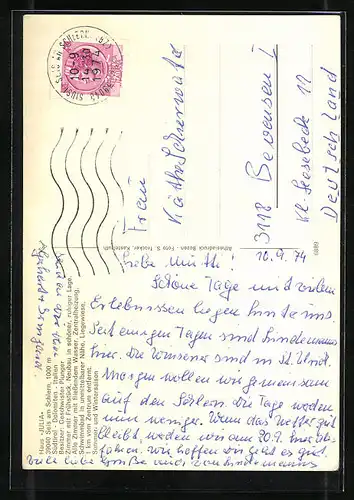 Haus «JULIA»
39040 Seis am Schlern, 1000 m
Südtirol - Dolomiten - Italien
Besitzer: Geschwister Plunger
Zimmer mit Frühstück. Neubau in schöner, ruhiger Lage.
Alle Zimmer mit fließendem Wasser, Zentralheizung.
Schwimmbad in unmittelbarer Nähe. Liegewiese.
1 km vom Zentrum entfernt.
Sommer- und Wintersaison
10-9
1974
Frau
Käthe
3118 Bevensen!
Kl. Hesebeck 12
Deutschland
Foto
6889
10.9.74
Liebe Mutti!
Schöne Tage mit vielen
Erlebnissen liegen hinter uns.
Seit einigen Tagen sind Lindemanns
hier. Die sind in St. Ulrich.
Morgen wollen wir gemeinsam
auf den Schlern. Die Tage werden
nun weniger. Wenn das Wetter gut
bleibt, werden wir am 20.9. hier ab-
fahren. Wir hoffen Dir geht es gut.
Viele liebe Grüße auch von Lindemanns